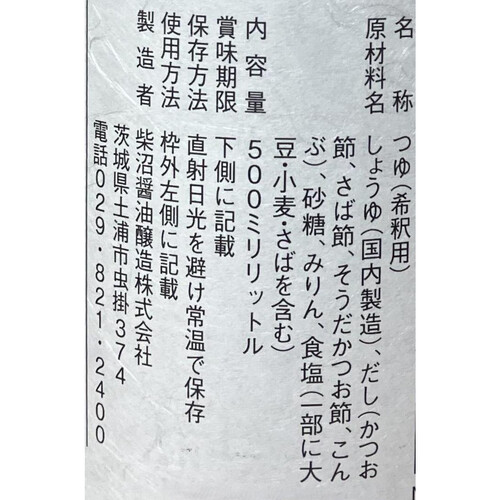 名称 つゆ(希釈用)
原材料名 しょうゆ(国内製造)、だし(かつお
節、さば節、そうだかつお節、こん
ぶ)、砂糖、みりん、食塩(一部に大
豆・小麦・さばを含む)
内容量 500ミリリットル
賞味期限 下側に記載
保存方法 直射日光を避け常温で保存
使用方法 枠外左側に記載
製造者 柴沼醤油醸造株式会社
茨城県土浦市虫掛374
電話029・821・2400